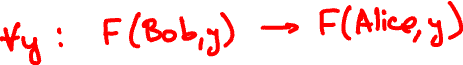 ∀y : F(Bob,y) → F(Alice,y)